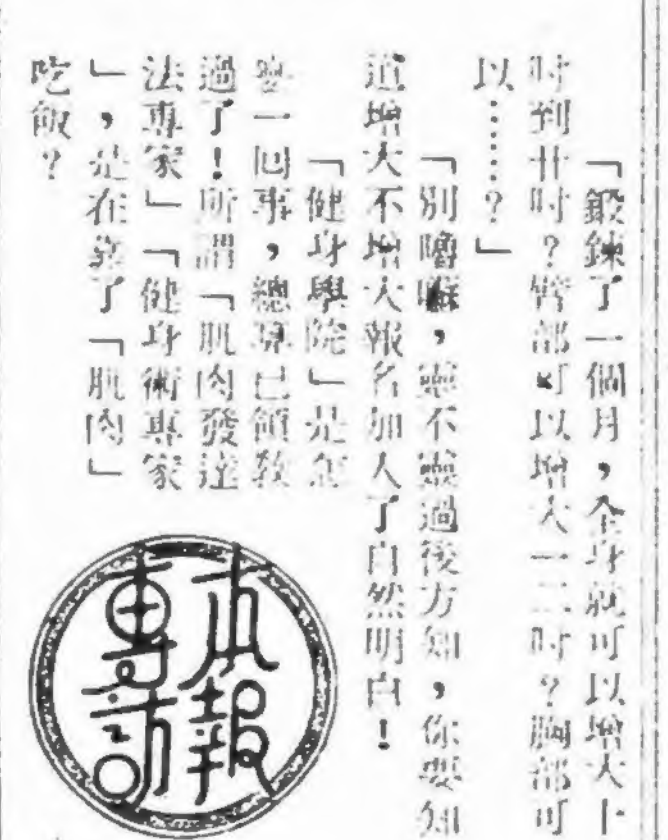 「鍛鍊了一個月，全身就可以增大十
吋到廿吋？臂部可以增大一二吋？胸部可
以……？」
「別嚕囌，靈不靈過後方知，你要知
道增大不增大報名加入了自然明白！
「健身學院」是怎
麼一回事，總算已領教
過了！所謂「肌肉發達
法專家」「健身術專家
」，是在靠了「肌肉」
吃飯？
本報
專訪